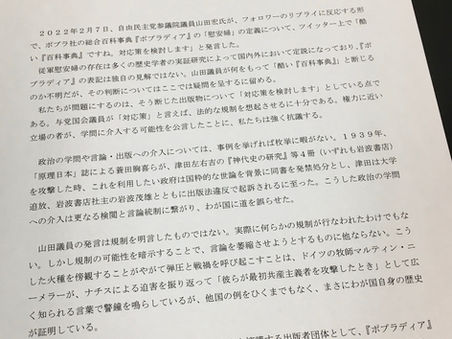 ２０２２年２月７日、自由民主党参議院議員山田宏氏が、フォロワーのリプライに反応する形
で、ポプラ社の総合百科事典『ポプラディア』の「慰安婦」の定義について、ツイッター上で「酷
い『百科事典』ですね。対応策を検討します」と発言した。
従軍慰安婦の存在は多くの歴史学者の実証研究によって国内外において定説になっており、『ポ
プラディア』の表記は独自の見解ではない。山田議員が何をもって「酷い『百科事典』」と断じる
のか不明だが、その判断についてはここでは疑問を呈するに留める。
私たちが問題にするのは、そう断じた出版物について「対応策を検討します」としている点で
ある。与党国会議員が「対応策」と言えば、法的な規制を想起させるに十分である。権力に近い
立場の者が、学問に介入する可能性を公言したことに、私たちは強く抗議する。
政治の学問や言論・出版への介入については、事例を挙げれば枚挙に暇がない。１９３９年、
「原理日本」誌による蓑田胸喜らが、津田左右吉の『神代史の研究』等４冊（いずれも岩波書店）
を攻撃した時、これを利用したい政府は国粋的な世論を背景に同書を発禁処分とし、津田は大学
追放、岩波書店社主の岩波茂雄とともに出版法違反で起訴されるに至った。こうした政治の学問
への介入は更なる検閲と言論統制に繋がり、わが国に道を誤らせた。
山田議員の発言は規制を明言したものではない。実際に何らかの規制が行なわれたわけでもな
い。しかし規制の可能性を暗示することで、言論を萎縮させようとするものに他ならない。こう
した火種を傍観することがやがて弾圧と戦禍を呼び起こすことは、ドイツの牧師マルティン・ニ
ーメラーが、ナチスによる迫害を振り返って「彼らが最初共産主義者を攻撃したとき」として広
く知られる言葉で警鐘を鳴らしているが、他国の例をひくまでもなく、まさにわが国自身の歴史
が証明している。
する出版者団体として、『ポプラディア』の